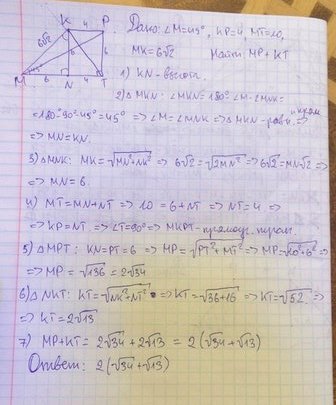 K 4 P
6√2 6
M 6 N 4 T
Дано: ∠M=45°, KP=4, MT=10,
MK=6√2 Найти: MP+KT
1) KN - высот.
2) △MKN: ∠MKN=180°-∠M-∠MNK=
=180°-90°-45°=45° ⇒ ∠M=∠MNK ⇒ △MKN - равн. ⇒
⇒ MN=KN.
3) △MNK: MK=√MN²+NK² ⇒ 6√2=√2MN² ⇒ 6√2=MN√2 ⇒
⇒ MN=6.
4) MT=MN+NT ⇒ 10=6+NT ⇒ NT=4 ⇒
⇒ KP=NT ⇒ ∠T=90° ⇒ MKPT - прямоуг.
5) △MPT: KN=PT=6 ⇒ MP=√PT²+MT² ⇒ MP=√10²+6² ⇒
⇒ MP=√136=2√34
6) △NKT: KT=√NK²+NT² ⇒ KT=√36+16 ⇒ KT=√52 ⇒
⇒ KT=2√13
7) MP+KT=2√34+2√13=2(√34+√13)
Ответ: 2(√34+√13)